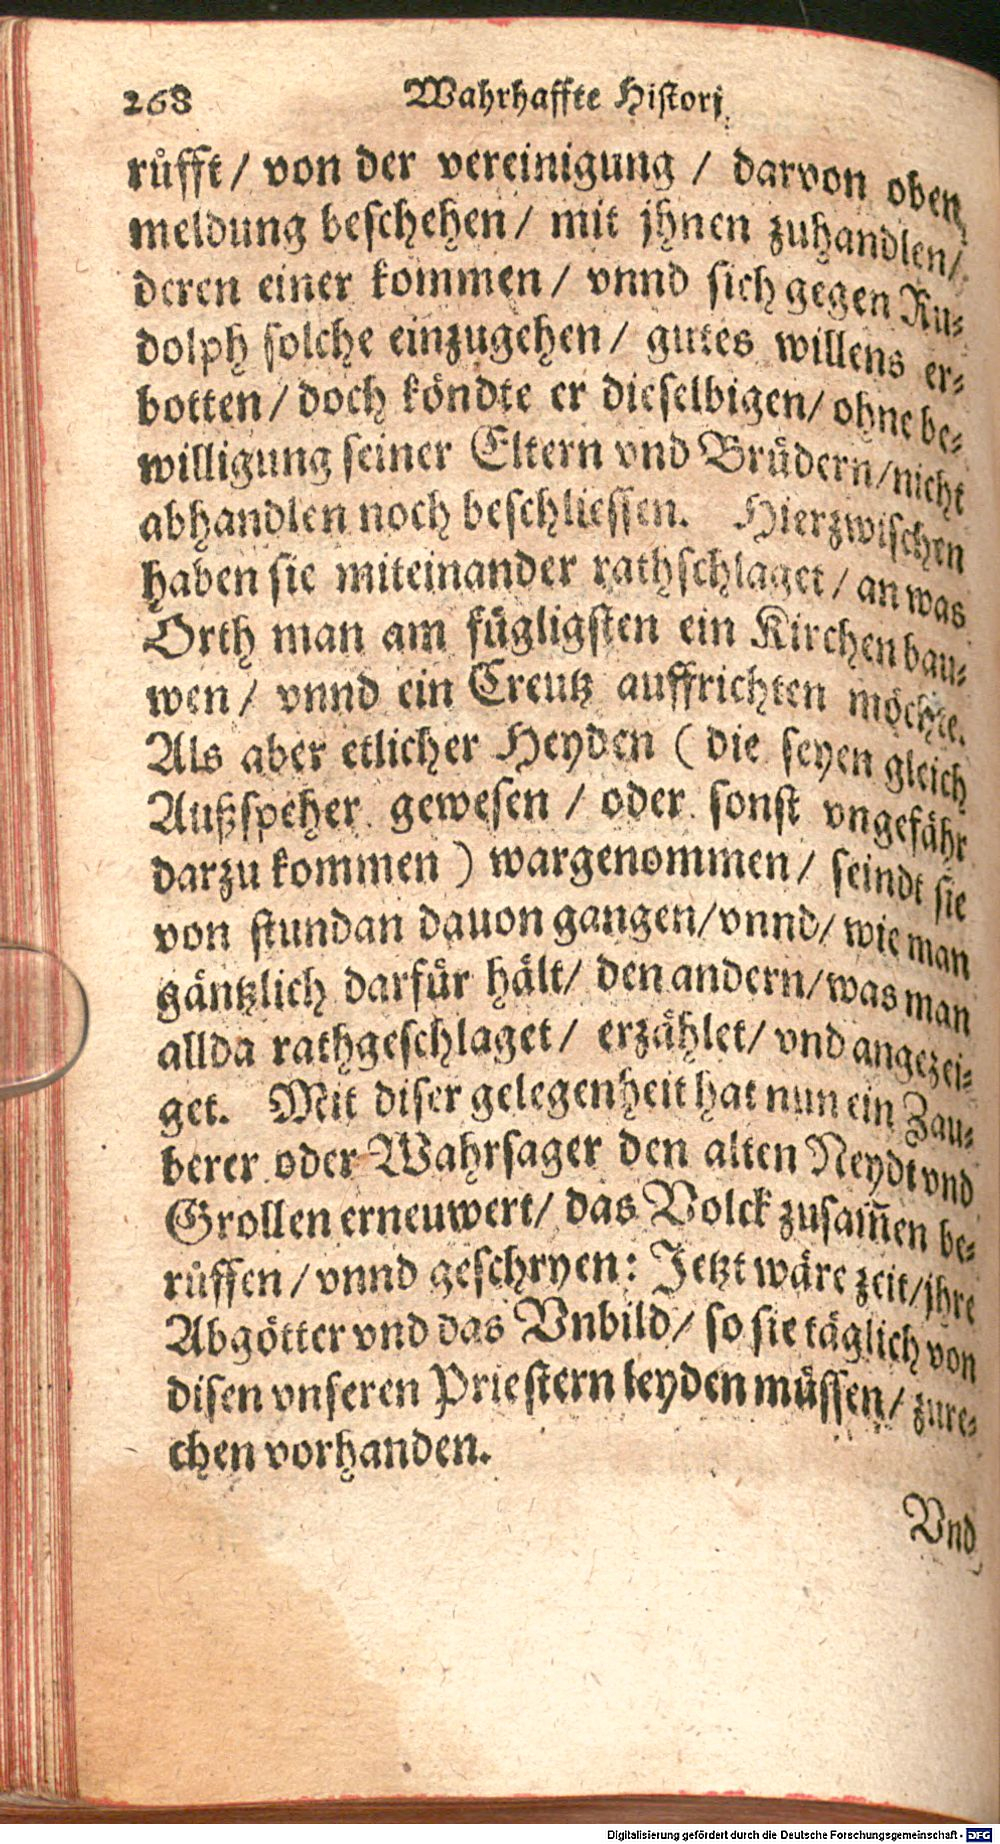 268 Wahrhaffte Histori
růfft / von der vereinigung / darvon oben
meldung beschehen / mit jhnen zuhandlen /
deren einer kommen / vnnd sich gegen Ru-
dolph solche einzugehen / gutes willens er-
botten / doch köndte er dieselbigen / ohne be-
willigung seiner Eltern vnd Brüdern / nicht
abhandlen noch beschliessen. Hierzwischen
haben sie miteinander rathschlaget / an was
Orth man am fügligsten ein Kirchen bau-
wen / vnnd ein Creutz auffrichten möchte.
Als aber etlicher Heyden ( die seyen gleich
Außspeher gewesen / oder sonst vngefähr
darzu kommen ) wargenommen / seindt sie
von stundan dauon gangen / vnnd / wie man
gäntzlich darfür hält / den andern / was man
allda rathgeschlaget / erzählet / vnd angezei-
get. Mit diser gelegenheit hat nun ein Zau-
berer oder Wahrsager den alten Neydt vnd
Grollen erneuwert / das Volck zusam̃en be-
růffen / vnnd geschryen: Jetzt wäre zeit / jhre
Abgötter vnd das Vnbild / so sie täglich von
disen vnseren Priestern leyden müssen / zure-
chen vorhanden.
Vnd
Digitalisierung gefördert durch die Deutsche Forschungsgemeinschaft - DFG